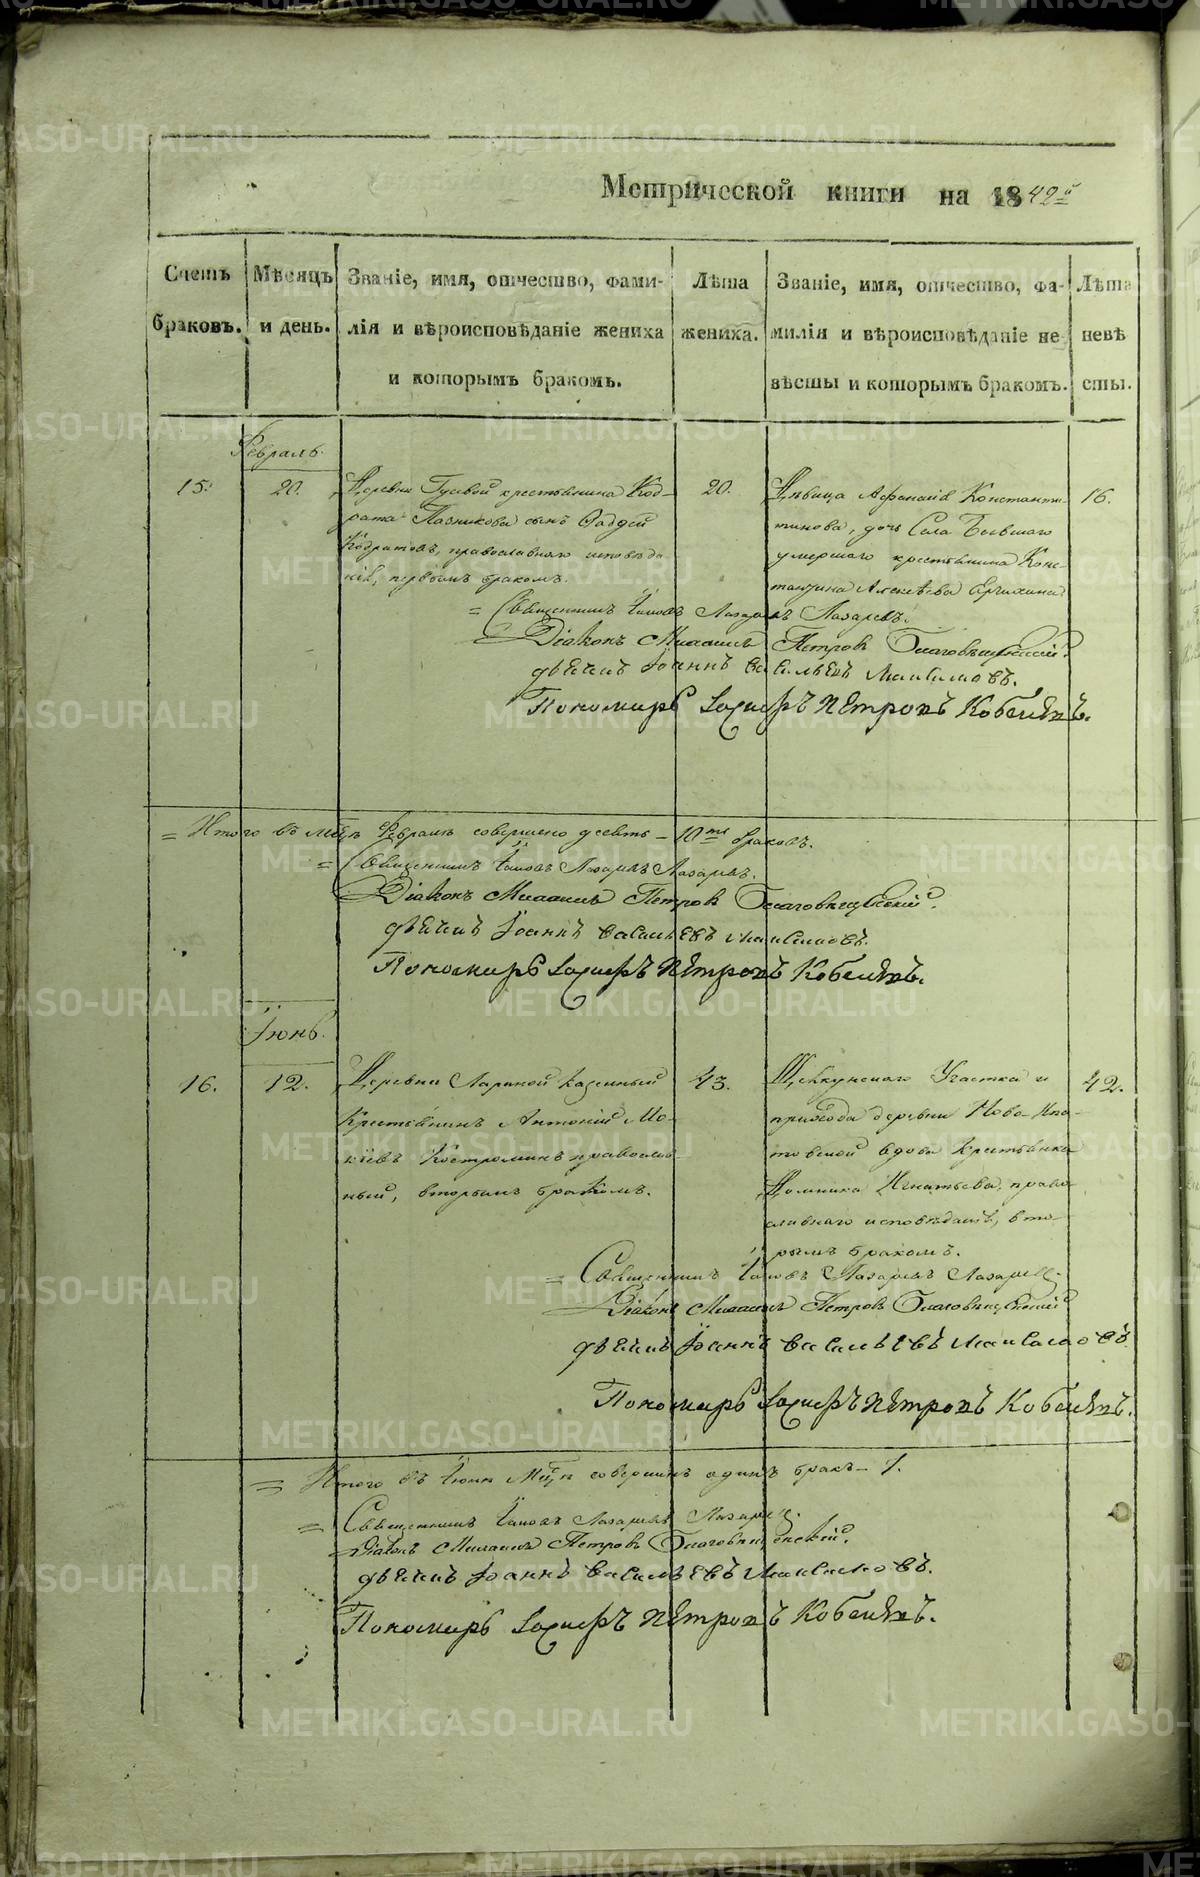 Метрической книги на 1842й
Счетъ браковъ.
Мѣсяцъ и день.
Званіе, имя, отчество, фами-
лія и вѣроисповѣданіе жениха
и которымъ бракомъ.
Лѣта
жениха.
Званіе, имя, отчество, фа-
милія и вѣроисповѣданіе не
вѣсты и которымъ бракомъ.
Лѣта
невѣ
сты.
Февраль.
15.
20.
Деревни Гусевой крестьянина Код-
рата Пазникова сынъ Фаддей
Кодратовъ, православнаго исповѣда
нія, первымъ бракомъ.
20.
Дѣвица Афанасія Константи-
тинова, дочь Села
умершаго крестьянина Конс-
тантина Алексѣева
16.
= Священникъ Іаковъ Лазаревъ Лазаревъ.
Діаконъ Михаилъ Петровъ Благовѣщенскій.
дьячикъ Іоаннъ василъевъ Максимовъ.
Пономарь Захиръ Петровъ Кобелевъ.
= Итого въ мѣцѣ Февралѣ совершено десять – 10ть браковъ.
= Священникъ Іаковъ Лазаревъ Лазаревъ.
Діаконъ Михаилъ Петровъ Благовѣщенскій.
дьячикъ Іоаннъ василъевъ Максимовъ.
Пономарь Захиръ Петровъ Кобелевъ.
Іюнь.
16.
12.
Деревни Лариной казенный
крестьянинъ Антоній Мо-
кіевъ Костроминъ православ-
ный, вторымъ бракомъ.
43.
Щелкунскаго Участка и
прихода деревни Ново-Ипа-
товской вдова крестьянка
Домника Игнатьева, право-
славнаго исповѣданія, вто-
рымъ бракомъ.
42.
= Священникъ Іаковъ Лазаревъ Лазаревъ.
Діаконъ Михаилъ Петровъ Благовѣщенскій
дьячикъ Іоаннъ василъевъ Максимовъ
Пономарь Захиръ Петровъ Кобелевъ.
= Итого въ Іюнѣ Мѣцѣ совершенъ одинъ бракъ – 1.
= Священникъ Іаковъ Лазаревъ Лазаревъ.
Діаконъ Михаилъ Петровъ Благовѣщенскій.
дьячикъ Іоаннъ василъевъ Максимовъ.
Пономарь Захиръ Петровъ Кобелевъ.
METRIKI.GASO-URAL.RU